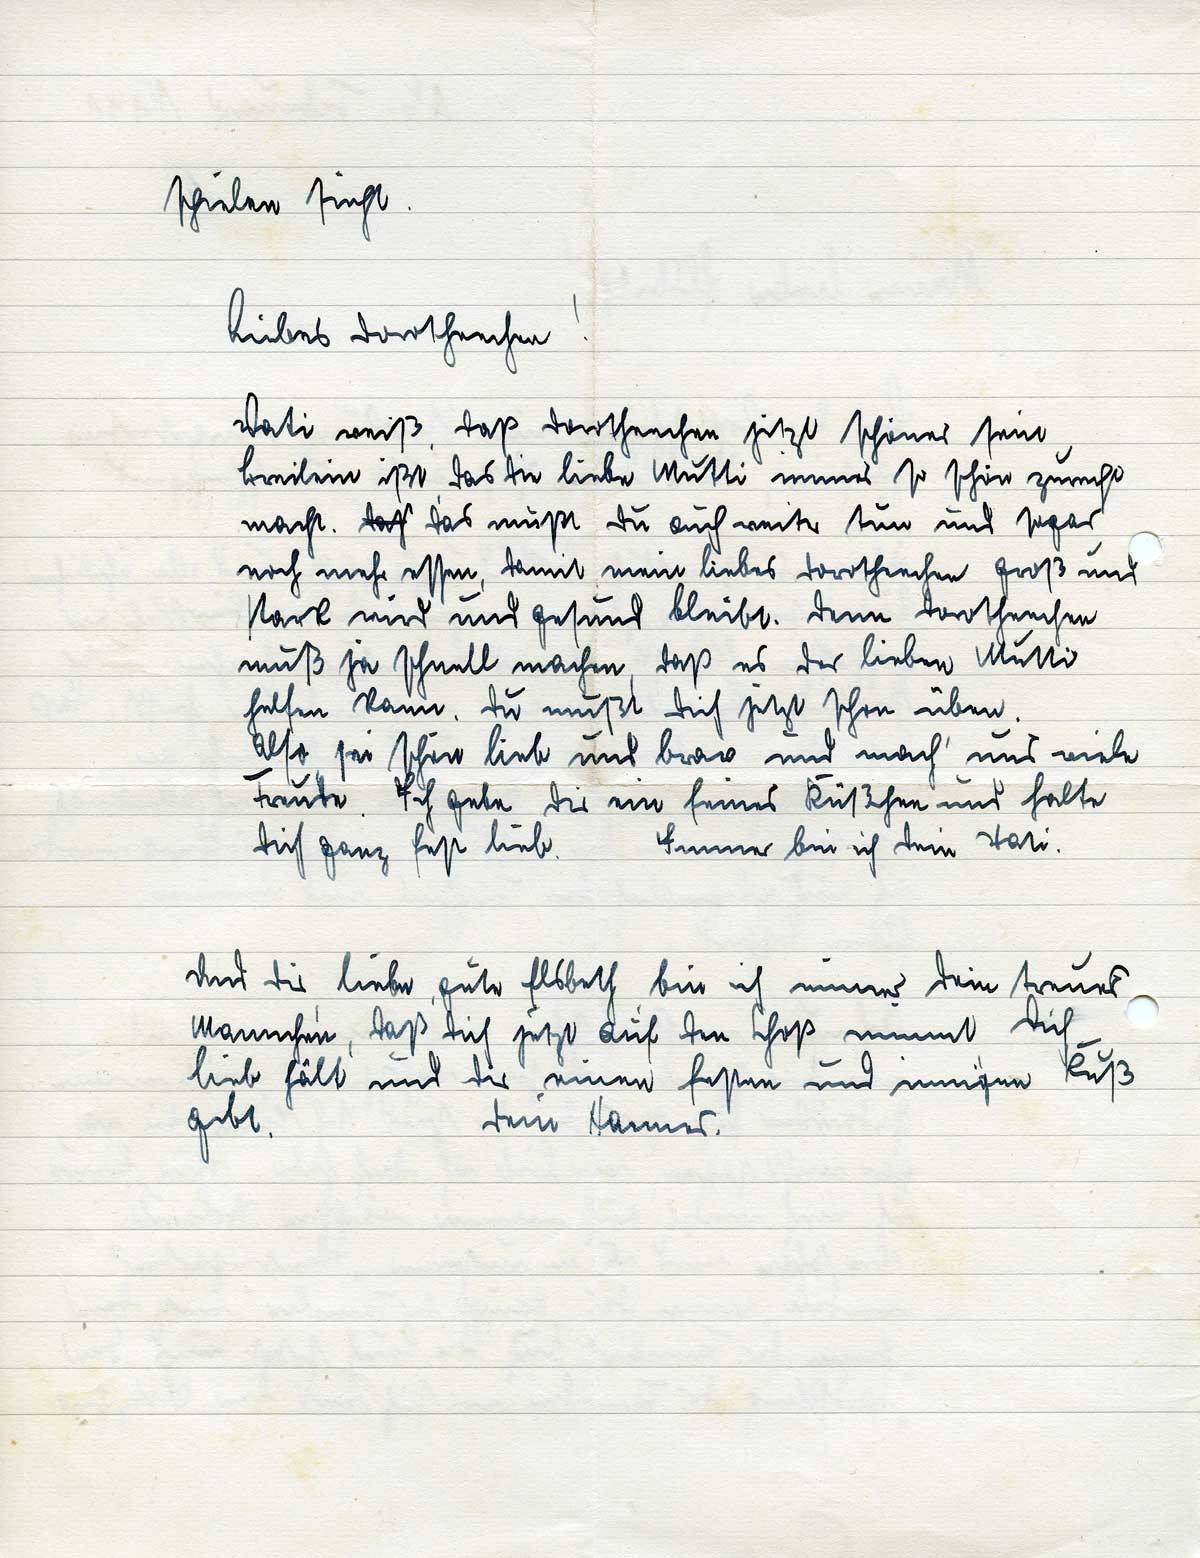 spielen sieht.
Liebes Dorotheechen!
Vati weiß, daß Dorotheechen jetzt schöner sein
Breilein ißt, das die liebe Mutti immer so schön zurecht
macht. daß das mußt Du auch weiter tun und sogar
noch mehr essen, damit mein liebes Dorotheechen groß und
stark wird und gesund bleibt. Denn Dorotheechen
muß ja schnell machen, daß es der lieben Mutti
helfen kann. Du mußt Dich jetzt schon üben.
Also, sei schön lieb und brav und mach' uns viele
Freude. Ich gebe Dir ein feines Küßchen und halte
Dich ganz fest lieb. Immer bin ich Dein Vati.
Und Dir, liebe, gute Elsbeth, bin ich immer Dein treues
Mannchen, daß Dich jetzt auf den Schoß nimmt Dich
lieb hält und Dir einen festen und innigen Kuß
gibt. Dein Hannes.